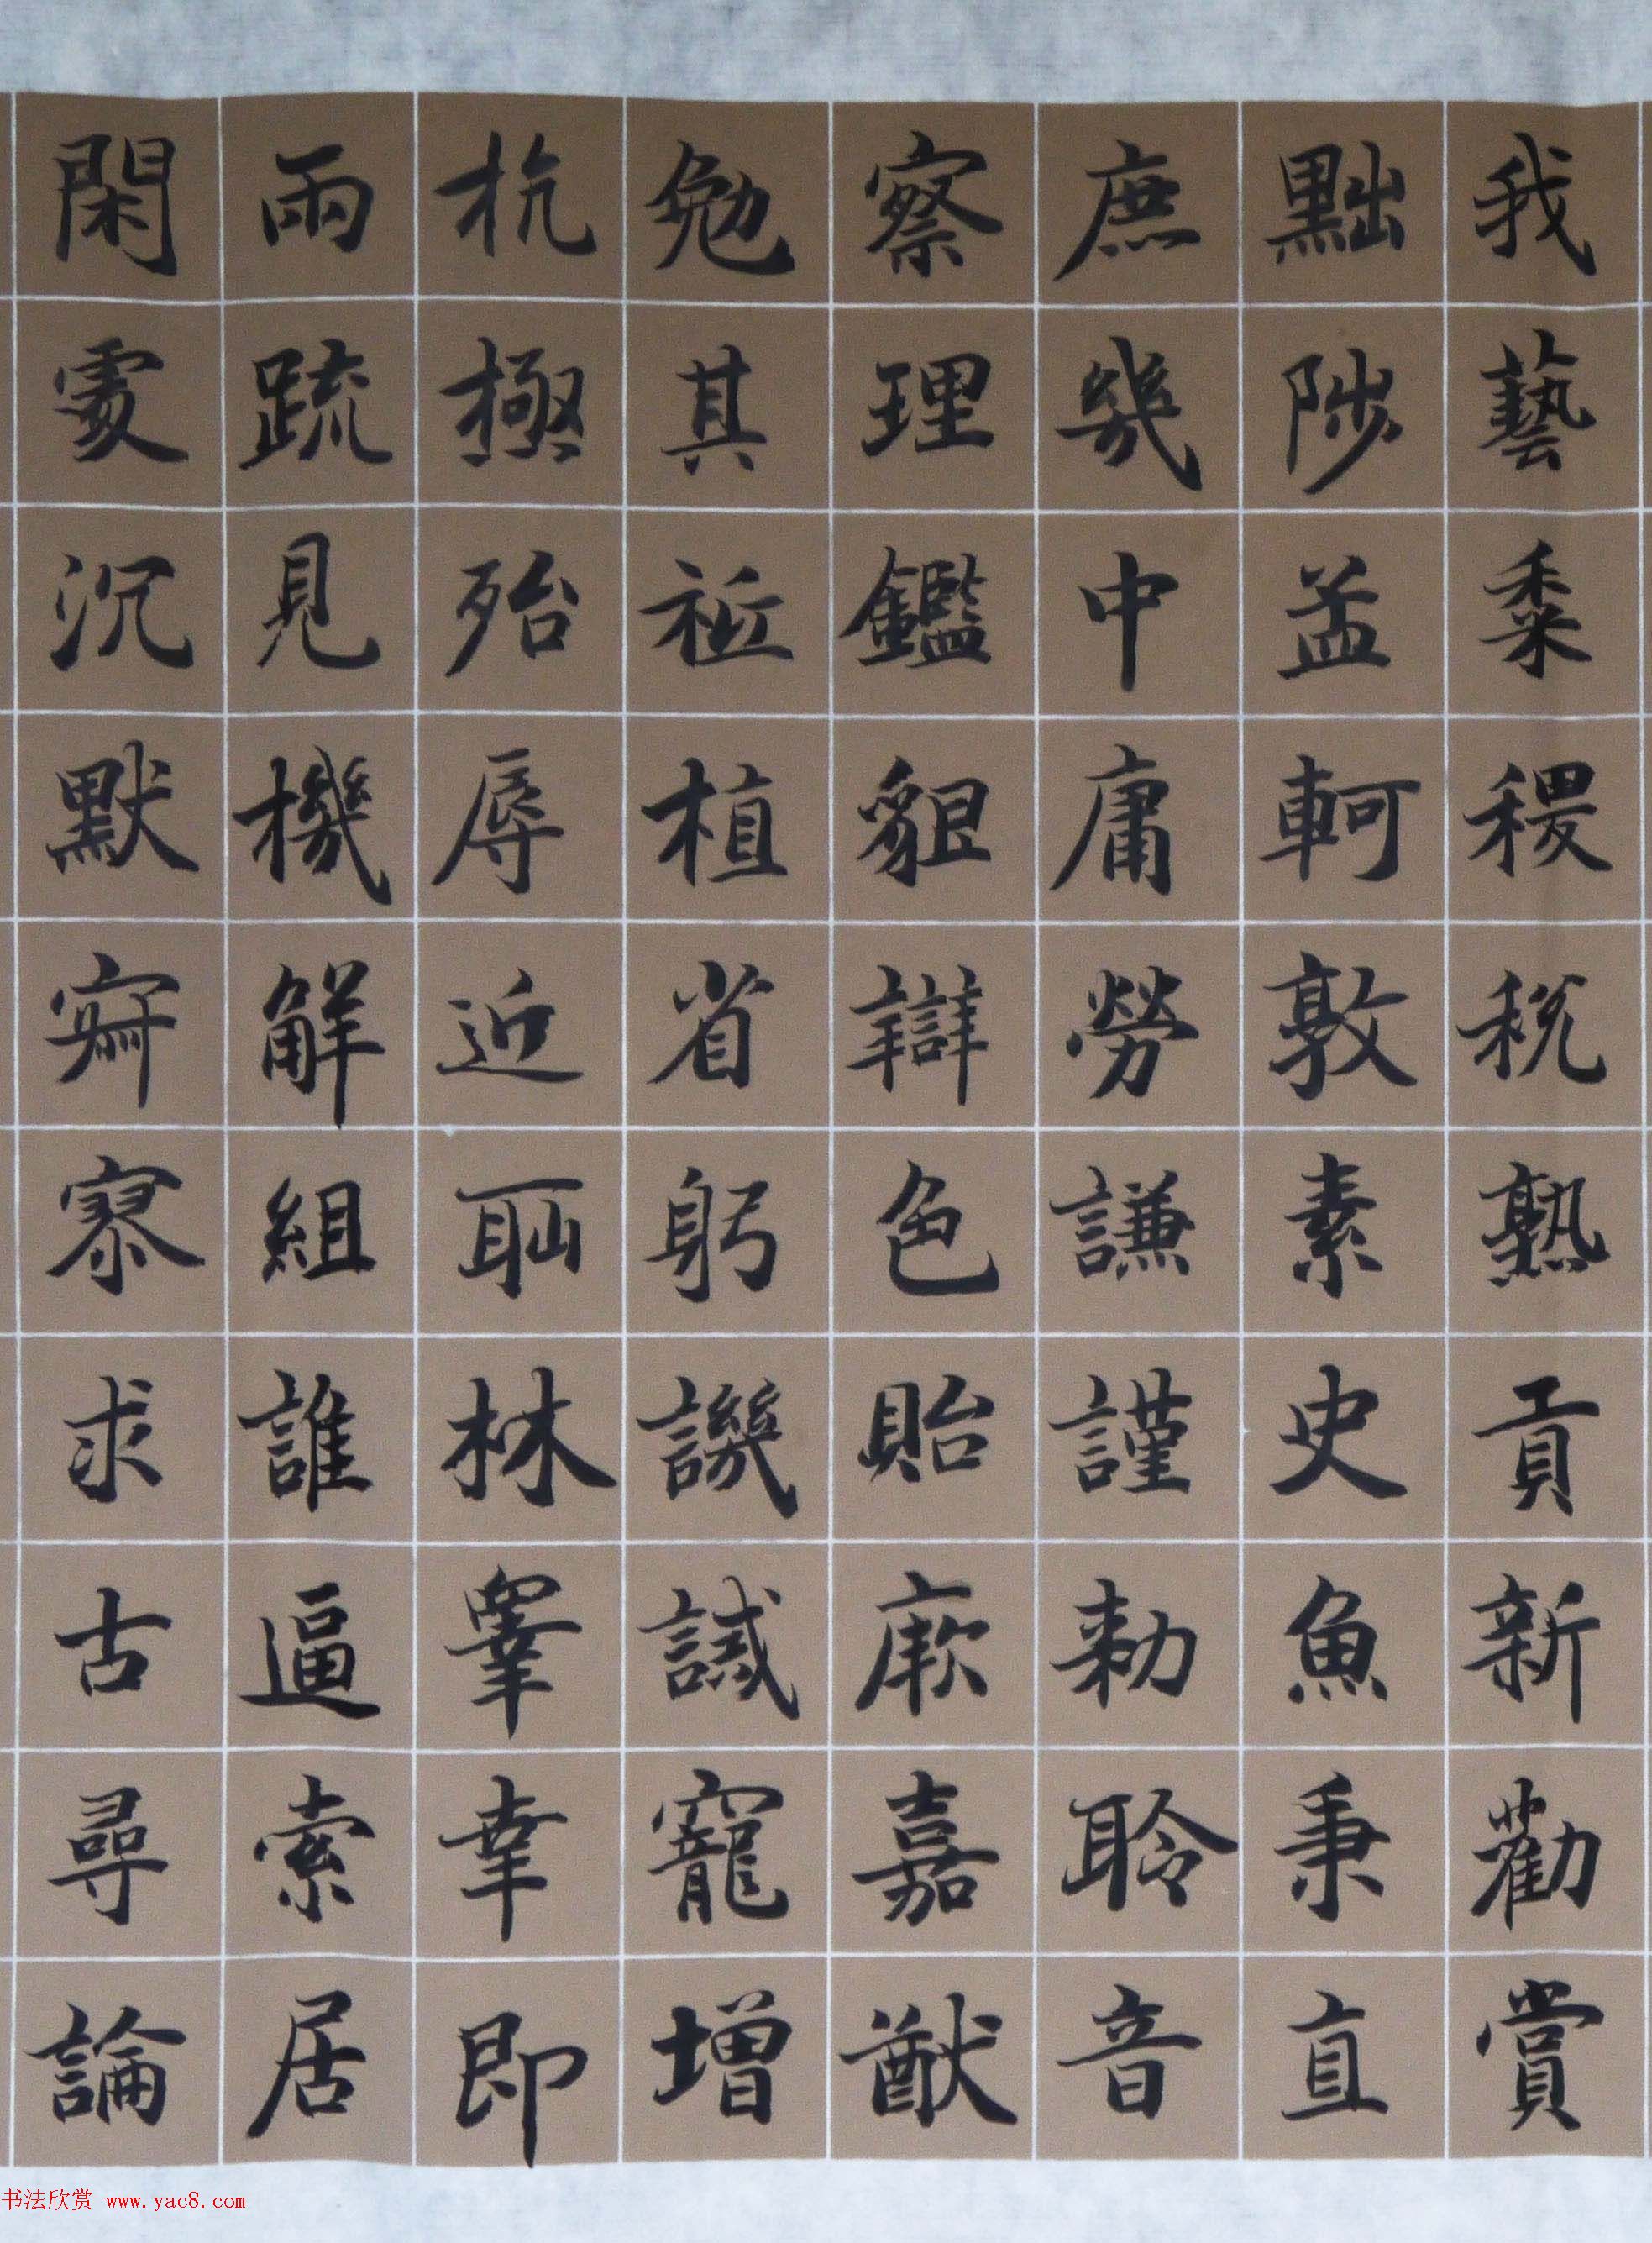 我藝黍稷稅熟貢新勸賞
黜陟孟軻敦素史魚秉直
庶幾中庸勞謙謹勅聆音
察理鑑貌辯色貽厥嘉猷
勉其祗植省躬譏誡寵增
抗極殆辱近恥林睪幸即
兩疏見機解組誰逼索居
閑處沉默寂寥求古尋論
书法欣赏 www.yac8.com